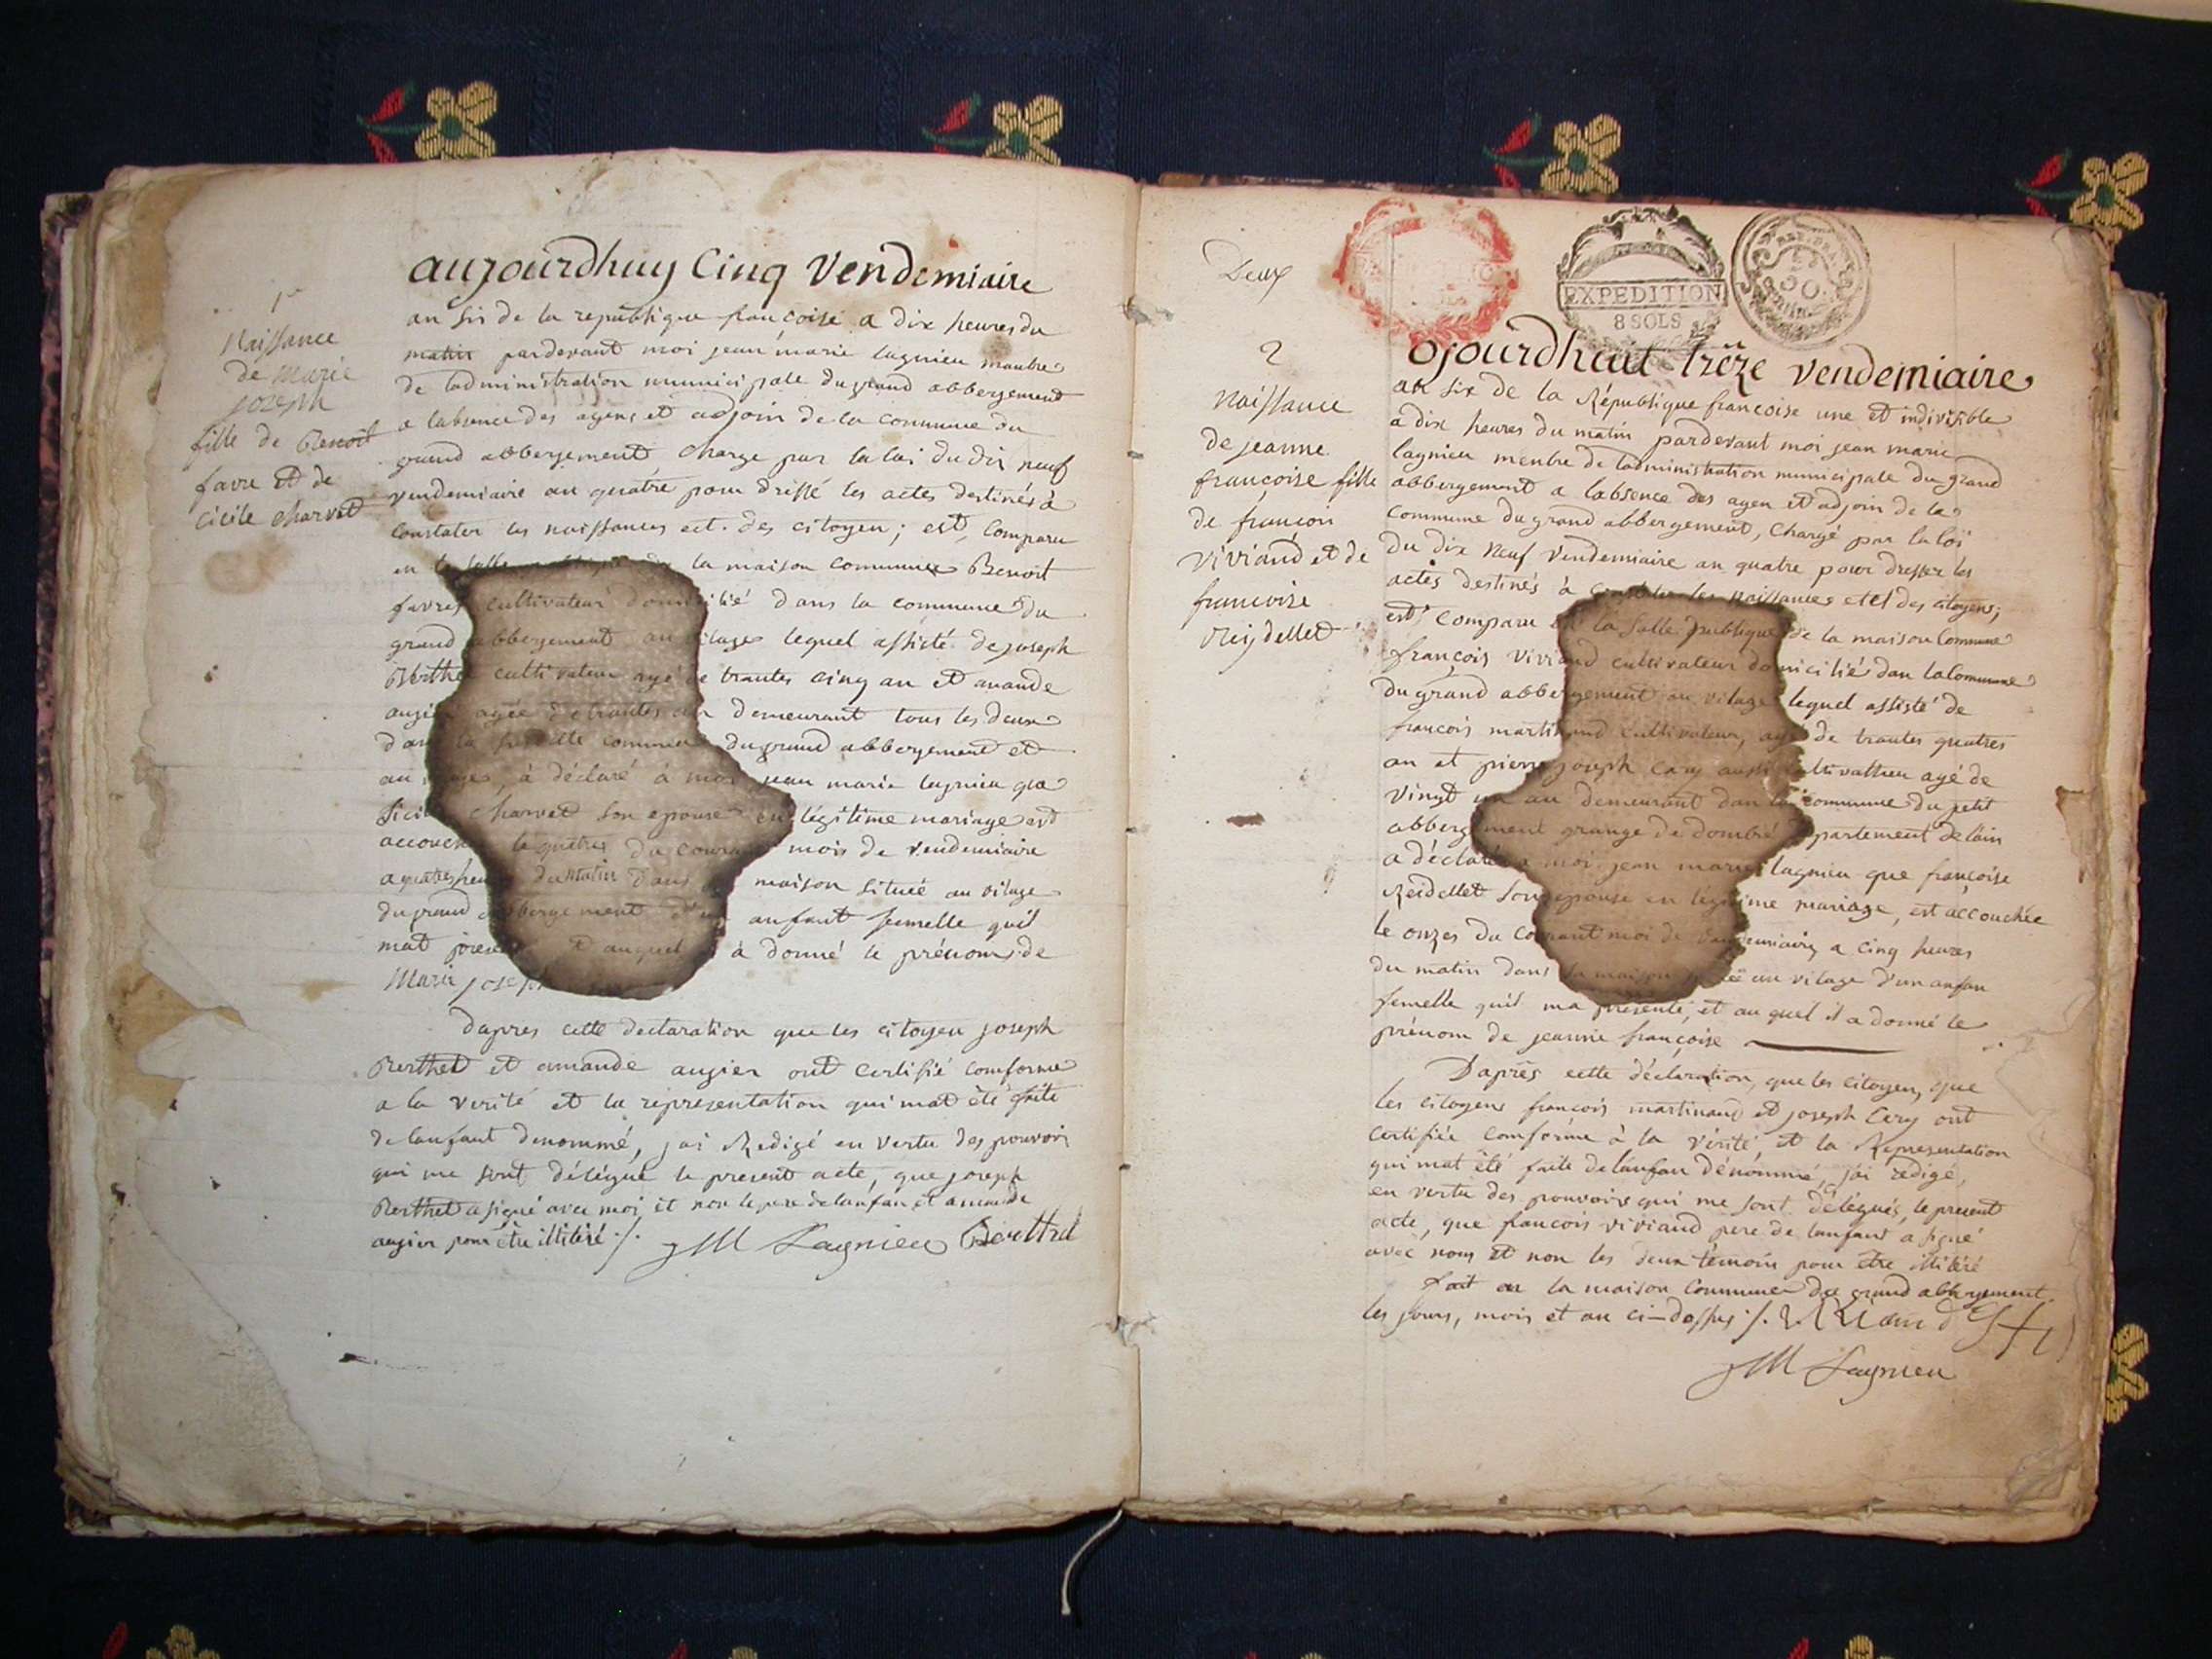 1re
Naissance
de marie
joseph
fille de Benoit
favre et de
cicile charvet
aujourdhuy Cinq Vendemiaire
an six de la republique francoise a dix heures du
matin pardevant moi jean marie lagnieu manbre
de ladministration municipale du grand abbergement
a labsence des agens et adjoin de la commune du
grand abbergement, charge par la loi du dix neuf
vendemiaire an quatre pour dressé les actes destinés à
constater les naissances ect. des citoyen; est, comparu
en la salle publique de la maison commune Benoit
favres cultivateur domicilié dans la commune du
grand abbergement au vilage lequel assisté de joseph
Berthet cultivateur agé de trantes cinq an et amande
augier agée de trantes an demeurant tous les deux
dans la commune du grand abbergement et
au vilage, à déclaré à moi jean marie lagnieu que
Sicile charvet son epouse en légitime mariage est
accouchée le quatres du courant mois de vendemiaire
a quatres heures du matin dans sa maison située au vilage
du grand abbergement d'un anfant femelle quil
mat presenté et auquel il à donné le prénom de
Marie joseph
Dapres cette declaration que les citoyen joseph
Berthet et amande augier ont certifié comforme
a la verité et la representation qui mat été faite
de lanfant denommé, jai Redigé en vertu des pouvoirs
qui me sont délégué le present acte, que joseph
Berthet a signé avec moi et non le pere de lanfan et amande
augier pour être illitéré ./. JM Lagnieu Berthet
Deux
EXPEDITION
8 SOLS
REP. FRA.
50
2
Naissance
de jeanne
françoise fille
de françois
viviand et de
francoise
Reydellet
ojourdhuit trêze vendemiaire
an six de la République francoise une et indivisible
a dix heures du matin pardevant moi jean marie
lagnieu menbre de ladministration municipale du grand
abbergement a labsence des agen et adjoin de la
commune du grand abbergement, chargé par la loi
du dix neuf vendemiaire an quatre pour dresser les
actes destinés à constater les naissances etct des citoyens;
est comparu en la salle publique de la maison commune
françois viviand cultivateur domicilié dan la commune
du grand abbergement au vilage lequel assisté de
françois martinand cultivateur, agé de trantes quatres
an et pierre joseph cery aussi cultivatteu agé de
vingt un an demeurant dan la commune du petit
abbergement grange de dombé département de lain
a déclaré a moi jean marie lagnieu que françoise
Reidellet son epouse en légitime mariage, est accouchée
le onzes du courant moi de vendemiaire a cinq heures
du matin dans sa maison située au vilage d'un anfan
femelle quil ma présenté, et au quel il a donné le
prénom de jeanne françoise
Daprès cette déclaration, que les citoyen, que
les citoyens françois martinand et joseph cery ont
certifiée comforme à la vérité, et la Representation
qui mat été faite de lanfan dénommé, jai redigé,
en vertu des pouvoirs qui me sont délégués, le present
acte, que francois viviand pere de lanfant a signé
avec nous et non les deux témoin pour être illitéré
fait en la maison commune du grand abbergement
les jours, mois et an ci-dessus ./. viviand
JM Lagnieu